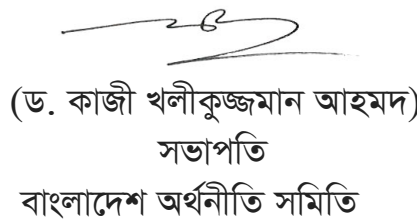 (ড. কাজী খলীকুজ্জমান আহমদ)
সভাপতি
বাংলাদেশ অর্থনীতি সমিতি